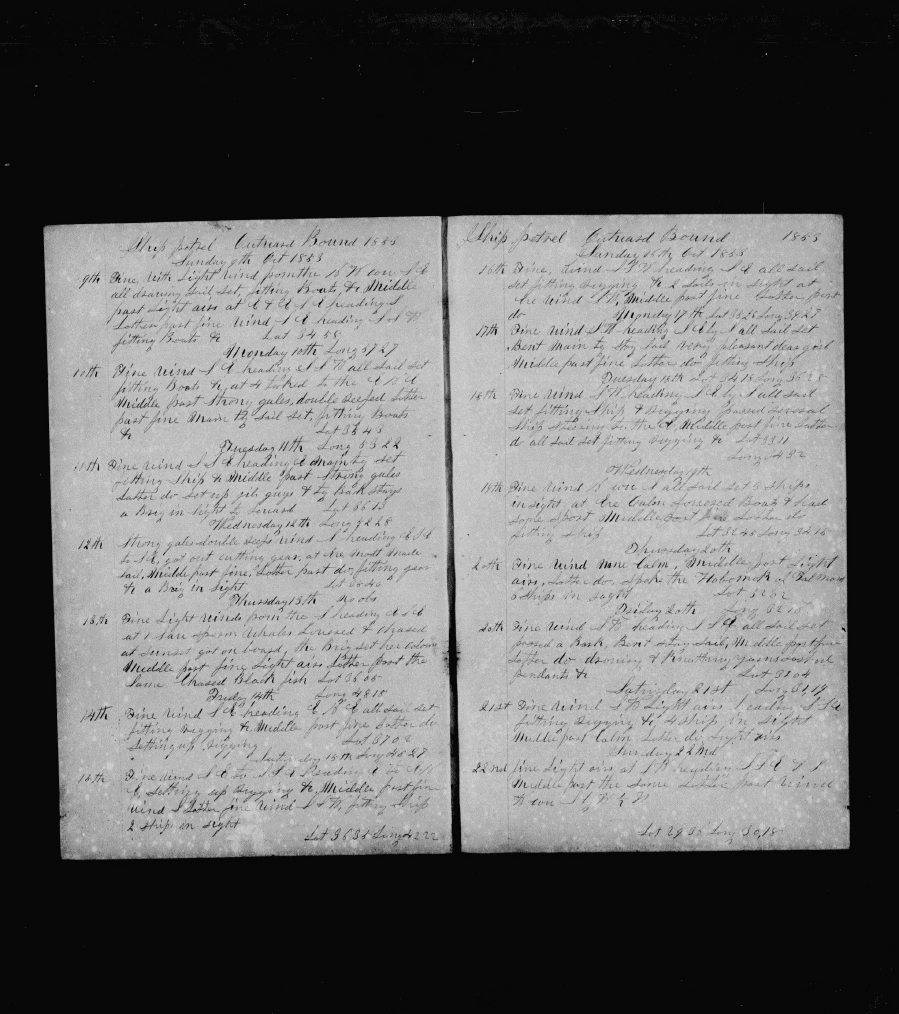 Ship petrel Outward Bound 1853
Sunday 9th Oct 1853
9th Fine, with Light wind from the N W con S E
all drawing sail set, fitting Boats &c Middle
part Light airs at E & E S E heading S
Latter part fine wind S E heading S W
fitting Boats &c Lat 34 58
Monday 10th Long 57 27
10th Fine wind S E heading S S W all sail set
fitting Boats &c, at 4 tacked to the E N E
Middle part strong gales, double reefed Latter
part fine Main Tg sail set, fitting Boats
&c Lat 35 43
Tuesday 11th Long 53 22
11th Fine wind S S E heading E main Tg set
fitting Ship &c Middle part Strong gales
Latter do Set up jib guys & Tg Back stays
a Brig in sight to leward Lat 35 13
Wednesday 12th Long 52 28
12th Strong gales double reefs wind S heading E S E
to S E, got out cutting gear, at five made
sail, Middle part fine, Latter part do, fitting gear
&c a Brig in sight Lat 35 40
Thursday 13th No obs
13th Fine Light winds from the S heading E S E
at 1 saw sperm whales Lowered & Chased
at sunset got on board, the Brig set her colors
Middle part fine Light airs Latter part the
same Chased Black fish Lat 36 05
Friday 14th Long 48 15
14th Fine wind S E heading E N E all sail set
fitting Rigging &c Middle part fine Latter do
Setting up rigging Lat 37 02
Saturday 15th Long 45 27
15th Fine wind S E to S S E Heading E to E N
E, setting up Rigging &c, Middle part fine
wind S Latter fine wind S S W, fitting Ship
2 ships in sight
Lat 36 35 Long 42 22
Ship petrel Outward Bound 1853
Sunday 16th Oct 1853
16th Fine, wind S W heading S E all sail
set fitting rigging &c 2 sails in sight at
five wind S W, Middle part fine Latter part
do Monday 17th Lat 35 25 Long 38 27
17th Fine wind S W heading S E by S all sail set
Bent main Tg stay sail very pleasant
Middle part fine Latter do fitting Ship
Tuesday 18th Lat 34 15 Long 36 28
18th Fine wind S W heading S E by S all sail
set fitting Ship & Rigging passed several
Ship steering to the E, Middle part fine Latter
do all sail set fitting rigging &c Lat 33 31
Long 34 32
Wednesday 19th
19th Fine wind W con S all sail set 2 ships
in sight at five Calm Lowered Boats & had
some sport Middle part fine Latter do
fitting ship Lat 32 45 Long 32 15
Thursday 20th
20th Fine wind nine Calm, Middle part Light
airs, Latter do. Spoke the Hobomok of Falmouth
6 ships in sight Lat 32 32
Friday 20th Long 32 15
20th Fine wind S W heading S S E all sail set
passed a Bark, Bent stay sail, Middle part fine
Latter do drawing & Knotting yarns
pendants &c Lat 31 04
Saturday 21st Long 31,19
21st Fine wind S W Light airs heading S S E
fitting rigging &c 4 ship in sight
Middle part Calm Latter do, Light airs
Sunday 22nd
22nd fine Light airs at S W heading S S E
Middle part the same Latter part wind
Lat 29 35 Long 30,18